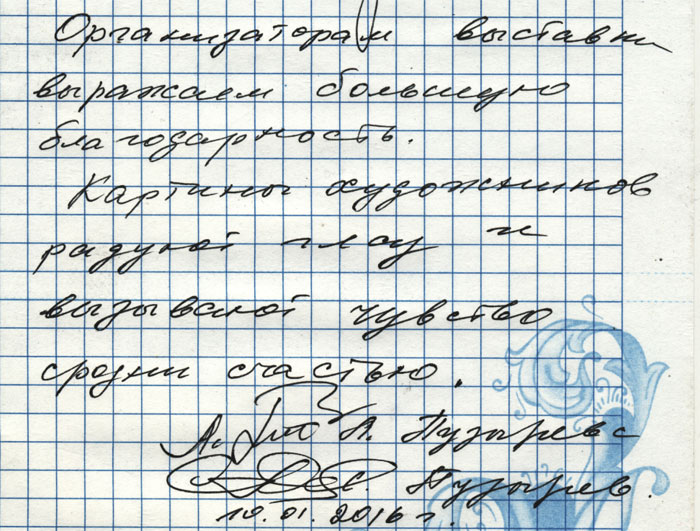 Организаторам выставки
выражаем большую
благодарность.
Картины художников
радуют глаз и
вызывают чувство
сродни счастью.
А. Пузырев
С. Пузырев.
10.01.2016 г.